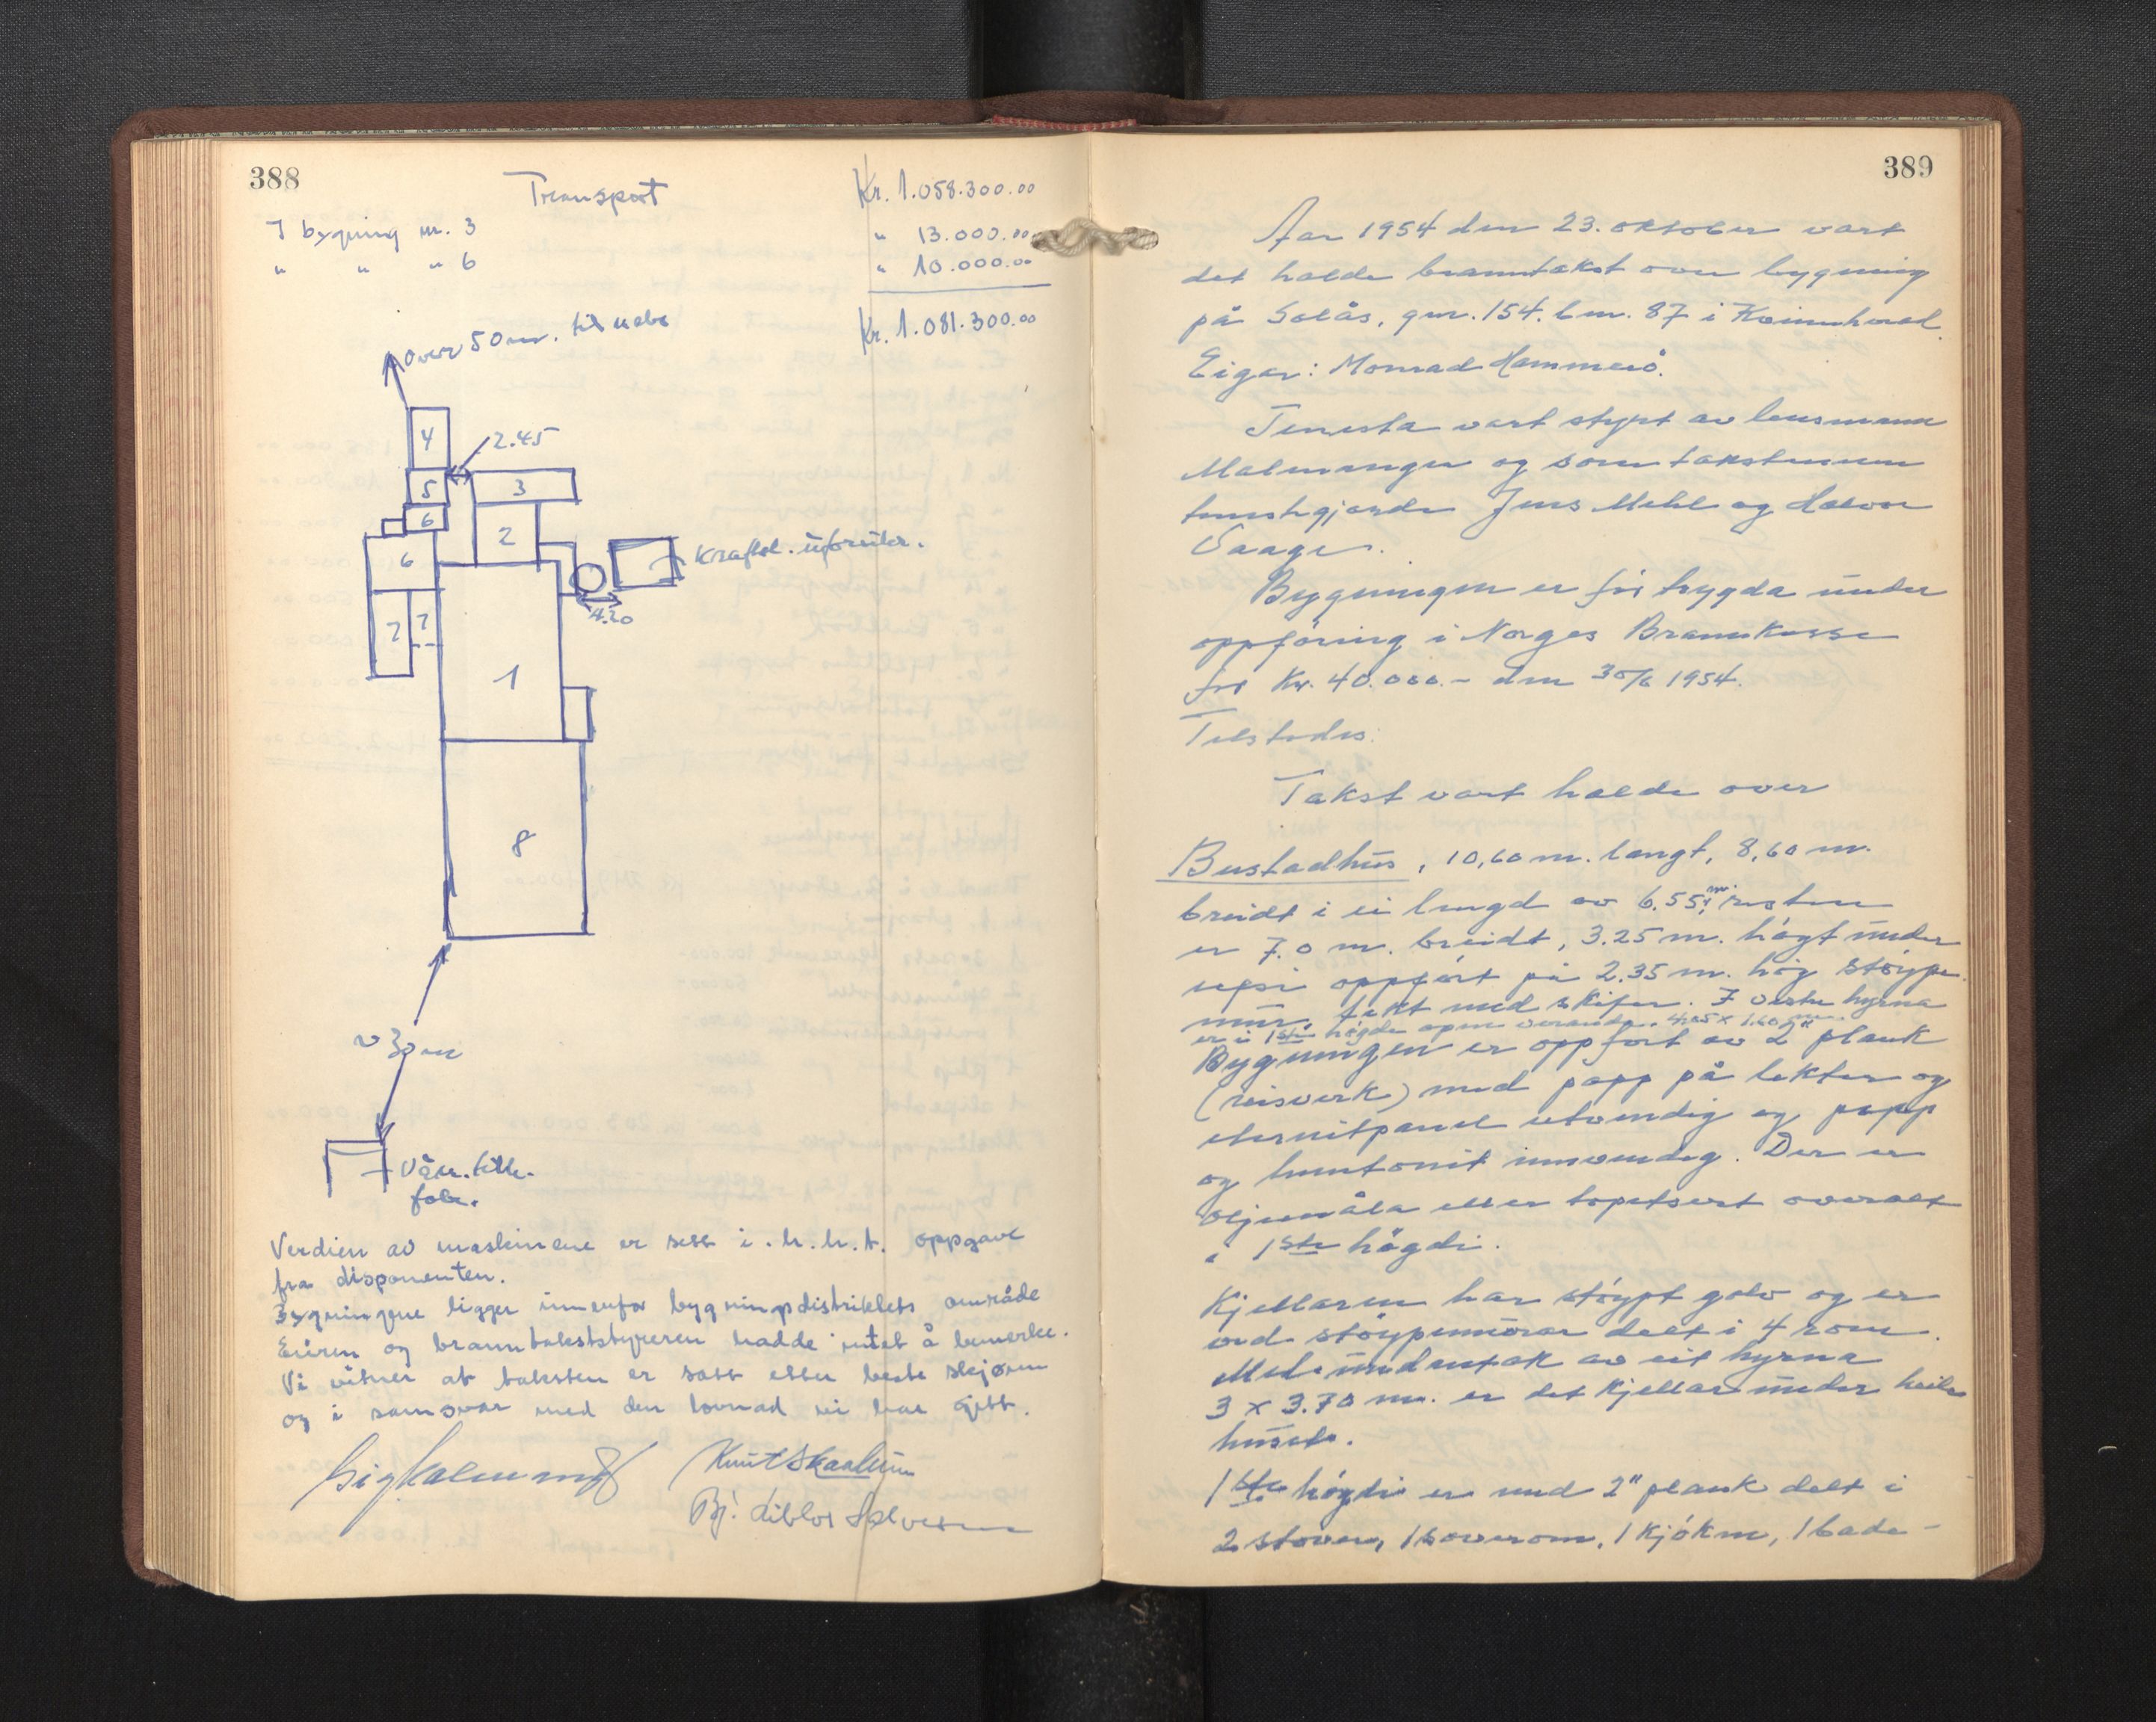 388
Transport Kr. 1.058.300.00
I bygning nr. 3 " 13.000.00
" " " 6 " 10.000.00
Kr. 1.081.300.00
Over 50 m. til nabo
4
2.45
5
3
6
2
6
Kraftst. uforsikr.
4.20
7
7
1
8
30 m
fabr.
Verdien av maskinene er sett i.h.h.t. oppgave
fra disponenten.
Bygningene ligger innenfor bygningsdistriktets område
Eieren og branntakststyreren hadde intet å bemerke.
Vi vitner at taksten er satt etter beste skjønn
og i samsvar med den lovnad vi har gitt.
Knut Skaaluren
389
Aar 1954 den 23. oktober vart
det halde branntakst over bygning
på Solås, gnr. 154. bnr. 87 i Kvinnherad.
Eigar: Monrad Hammerö.
Tenesta vart styrt av lensmann
Malmanger og som takstmenn
tenestegjorde Jens Mehl og Halvor
Vaage.
Bygningen er för trygda under
oppföring i Norges Brannkasse
for Kr. 40.000.- den 30/6 1954.
Tilstades:
Takst vart halde over
Bustadhus, 10,60 m. langt, 8,60 m.
breidt i ei lengd av 6.55 m, resten
er 7.0 m. breidt, 3.25 m. högt under
ufsi oppfört på 2.35 m. hög stöype
mur, tekt med skifer. I vestre hyrna
er i 1ste högde open veranda. 4.05 x 1.60 m.
Bygningen er oppfört av 2" plank
(reisverk) med papp på lekter og
eternitpanel utvendig og papp
og huntonit innvendig. Der er
oljemåla eller tapetsert overalt
i 1ste högdi.
Kjellaren har stöypt golv og er
ved stöypemurar delt i 4 rom.
Med undantak av eit hyrna
3 x 3.70 m. er det kjellar under heile
huset.
1ste högdi er med 2" plank delt i
2 stover, 1 soverom, 1 kjökken, 1 bade-